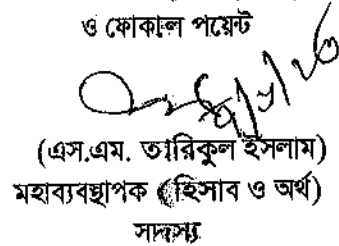 ও ফোকাল পয়েন্ট
(এস.এম. তারিকুল ইসলাম)
মহাব্যবস্থাপক (হিসাব ও অর্থ)
সদস্য